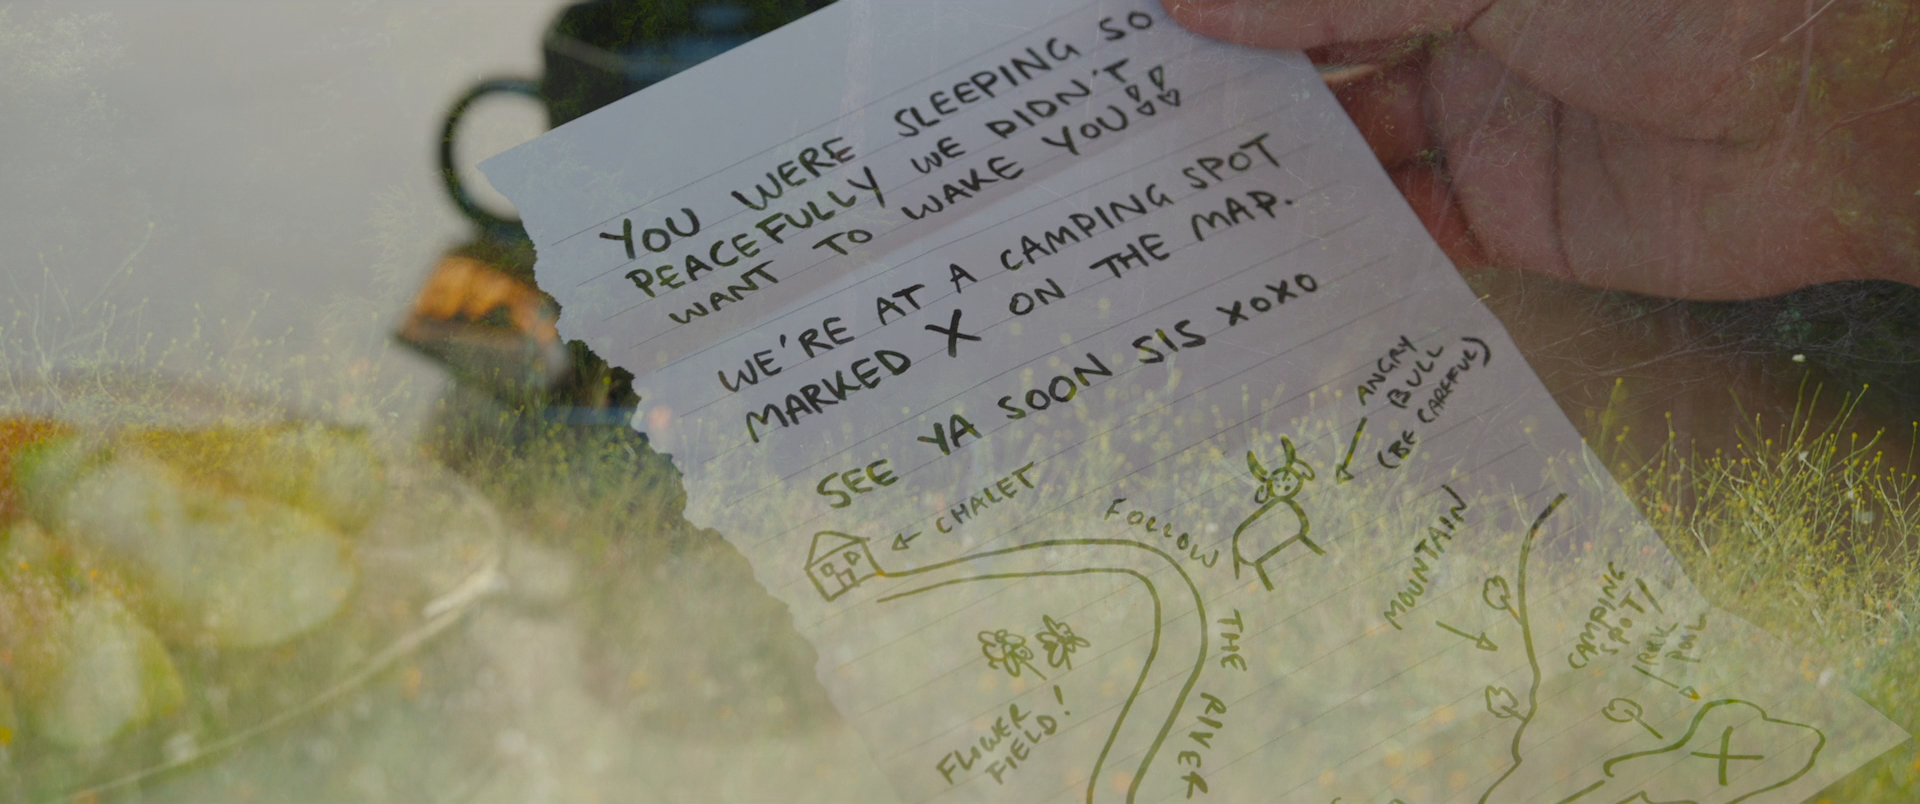 YOU WERE SLEEPING SO
PEACEFULLY WE DIDN'T
WANT TO WAKE YOU!!
WE'RE AT A CAMPING SPOT
MARKED X ON THE MAP.
SEE YA SOON SIS XOXO
← CHALET
FOLLOW
THE
RIVER
ANGRY
BULL
(BE CAREFUL)
MOUNTAIN
CAMPING
SPOT/
FLOWER
FIELD!
X